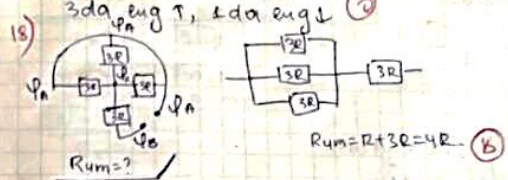 3da eng ↑, 1da eng ↓
18)
φA
3R
φA 3R φc 3R φA
3R
φB
Rum=?
3R
3R 3R
3R
Rum=R+3R=4R.